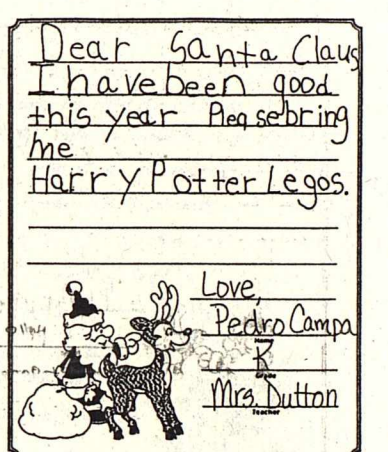 Dear Santa Claus
I have been good
this year Please bring
me
Harry Potter Legos.
Love,
Pedro Campa
Name
K
Grade
Mrs. Dutton
Teacher